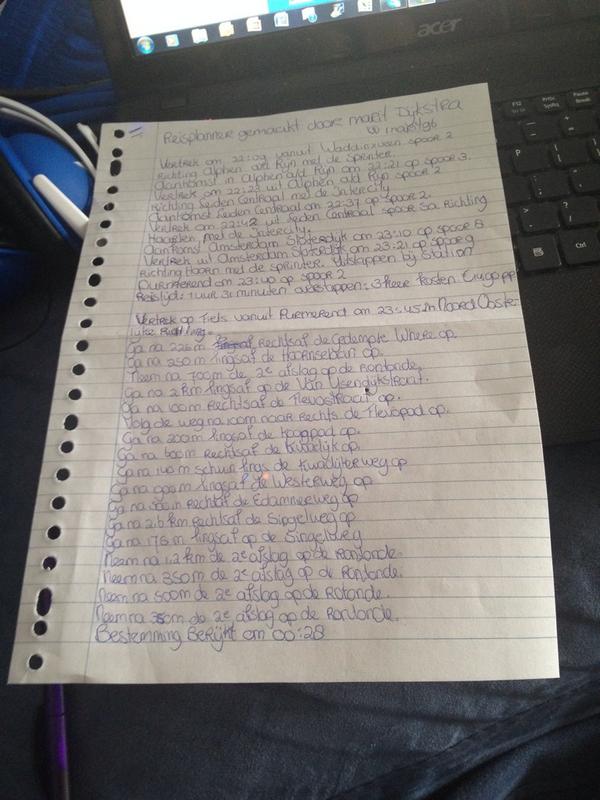 acer
Reisplanner gemaakt door marit Dijkstra
Vertrek om 22:09 vanuit Waddinxveen spoor 2
Richting Alphen a/d Rijn met de sprinter.
Aankomst in Alphen a/d Rijn om 22:21 op spoor 3.
Vertrek om 22:23 uit Alphen a/d Rijn spoor 2
Richting Leiden Centraal met de Intercity
Aankomst Leiden Centraal om 22:37 op spoor 2.
Vertrek om 22:42 uit Leiden Centraal spoor 5a Richting
Haarlem met de Intercity.
Aankomst Amsterdam Sloterdijk om 23:10 op spoor 8
Vertrek uit Amsterdam Sloterdijk om 23:21 op spoor 9
Richting Hoorn met de sprinter. Uitstappen bij Station
Purmerend om 23:40 op spoor 2
Reistijd: 1 uur 31 minuten overstappen: 3 keer Kosten
Vertrek op Fiets vanuit Purmerend om 23:45 in Noord Ooste-
lijke Richting.
Ga na 226 m Rechtsaf de Gedempte Where op.
Ga na 250 m lingsaf de Hoornselaan op.
Neem na 700m de 2e afslag op de Rontonde.
Ga na 2 km lingsaf op de Van IJsendijkstraat.
Ga na 100m Rechtsaf de Flevostraat op.
Volg de weg na 100m naar Rechts de Flevopad op.
Ga na 200m lingsaf de Hoogpad op.
Ga na 600m Rechtsaf de Kwadijk op.
Ga na 140 m schuin lings de Kwadijkerweg op
Ga na 900m lingsaf de Westerweg op
Ga na 500m rechtsaf de Edammerweg op
Ga na 2,6 km rechtsaf de Singelweg op
Ga na 175 m lingsaf op de Singelweg
Neem na 1,2 km de 2e afslag op de Rontonde.
Neem na 350m de 2e afslag op de Rontonde.
Neem na 500m de 2e afslag op de Rotonde.
Neem na 350m de 2e afslag op de Rontonde.
Bestemming Berijkt om 00:28